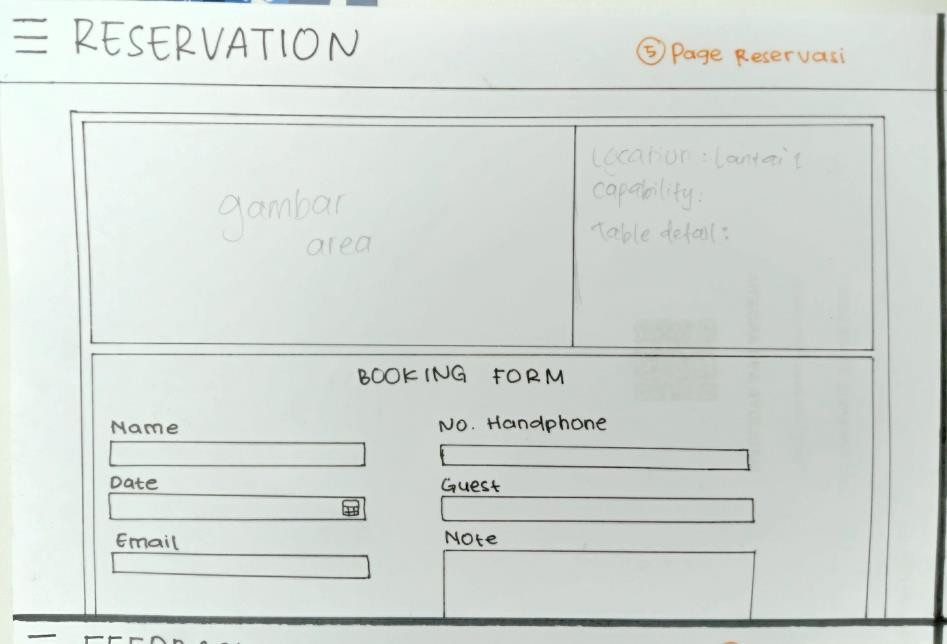 RESERVATION
5 Page Reservasi
gambar
area
Location : Lantai 1
capability:
Table detail:
BOOKING FORM
Name
No. Handphone
Date
Guest
Email
Note